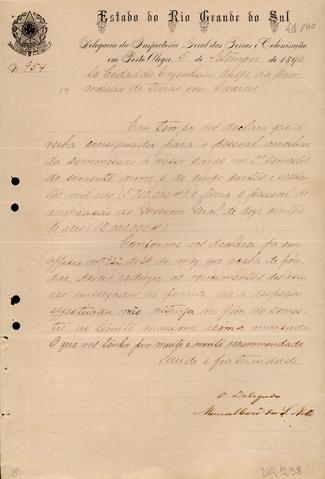 Estado do Rio Grande do Sul
Delegacia da Inspectoria Geral das Terras e Colonisação
em Porto Alegre, 5 de de 1890
Nº 954
Ao Cidadão Engenheiro Chefe da Com-
missão de Terras em Caxias
19
Em tempo vos declaro que a
verba consignada para o pessoal auxiliar
da commissão a vosso cargo no 2º semestre
do corrente anno é de cinco contos e setecentos
mil reis (5,700,000#) e para o pessoal de
nomeação do Governo Geral de doze contos
de reis (12,000,000#)
Conforme vos declarei já em
officio nº 932 de 30 do mez que acaba de fin-
dar, deveis reduzir os vencimentos dos
empregados de forma que a despeza
effectuada não attinja no fim do semes-
tre, ao limite maximo acima marcado.
O que vos tenho por muito e muito recommendado
Saude e fraternidade
O Delegado